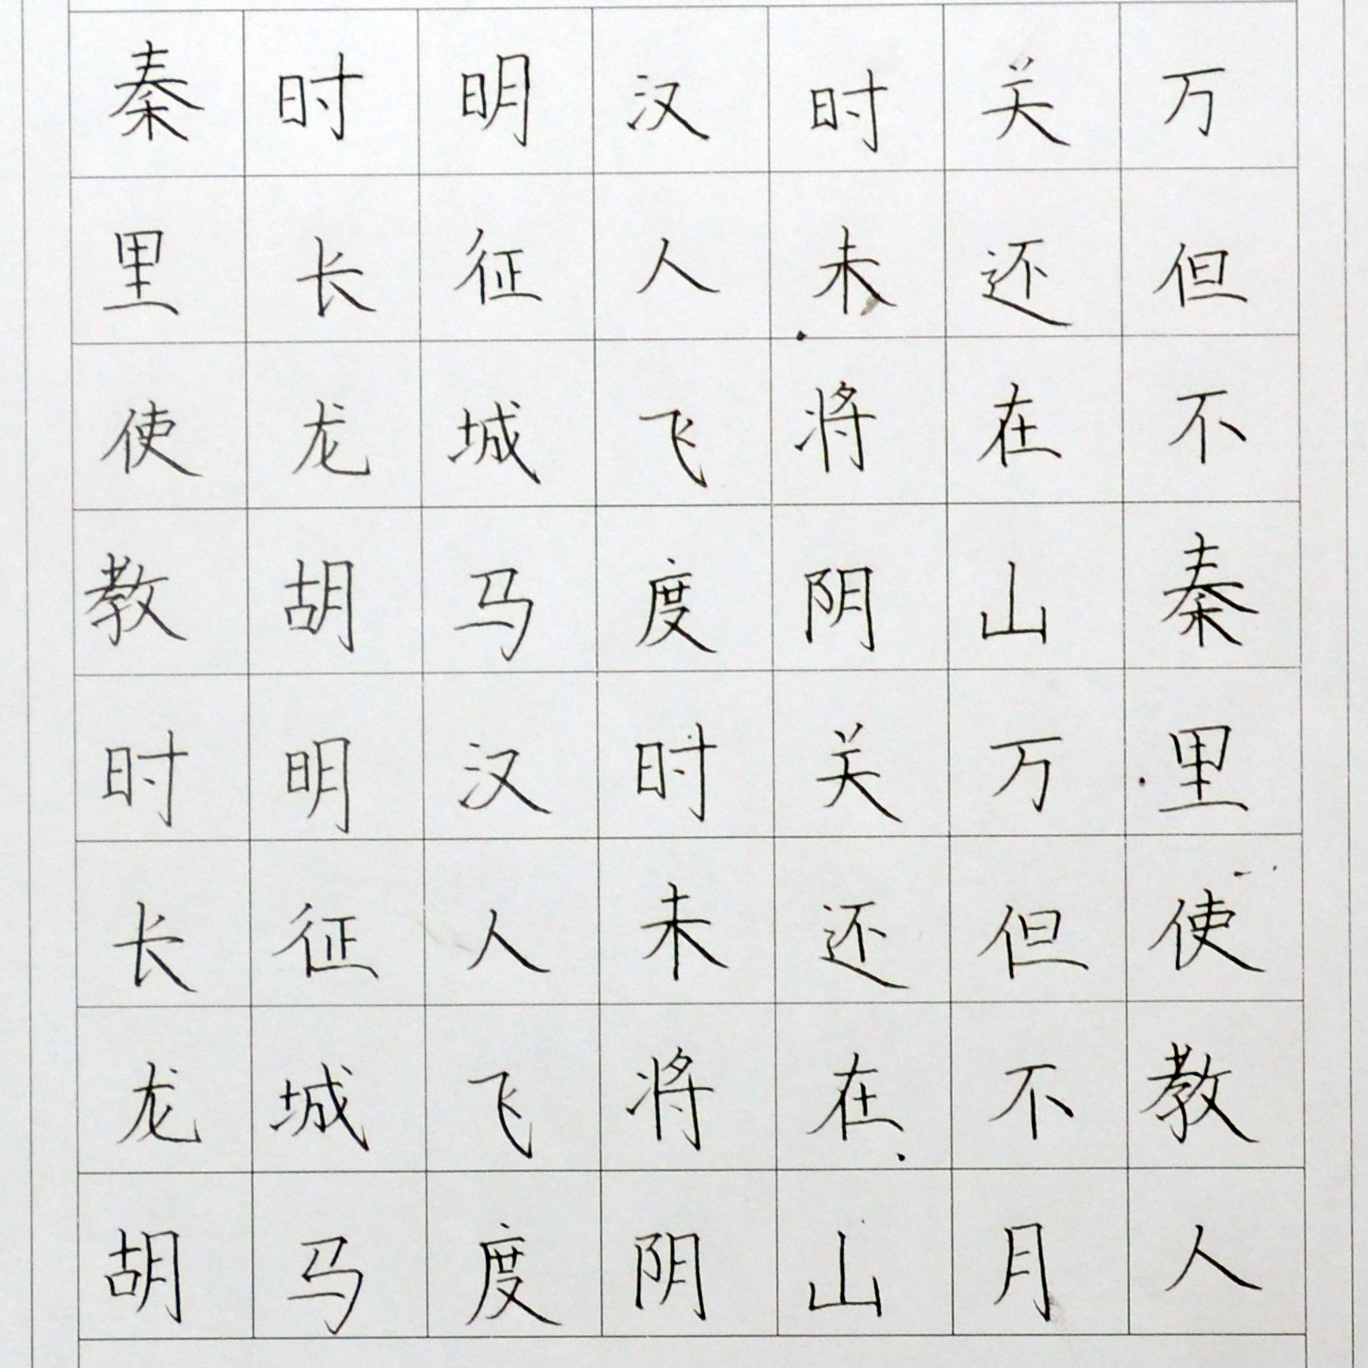 秦时明汉时关万
里长征人未还但
使龙城飞将在不
教胡马度阴山秦
时明汉时关万里
长征人未还但使
龙城飞将在不教
胡马度阴山月人